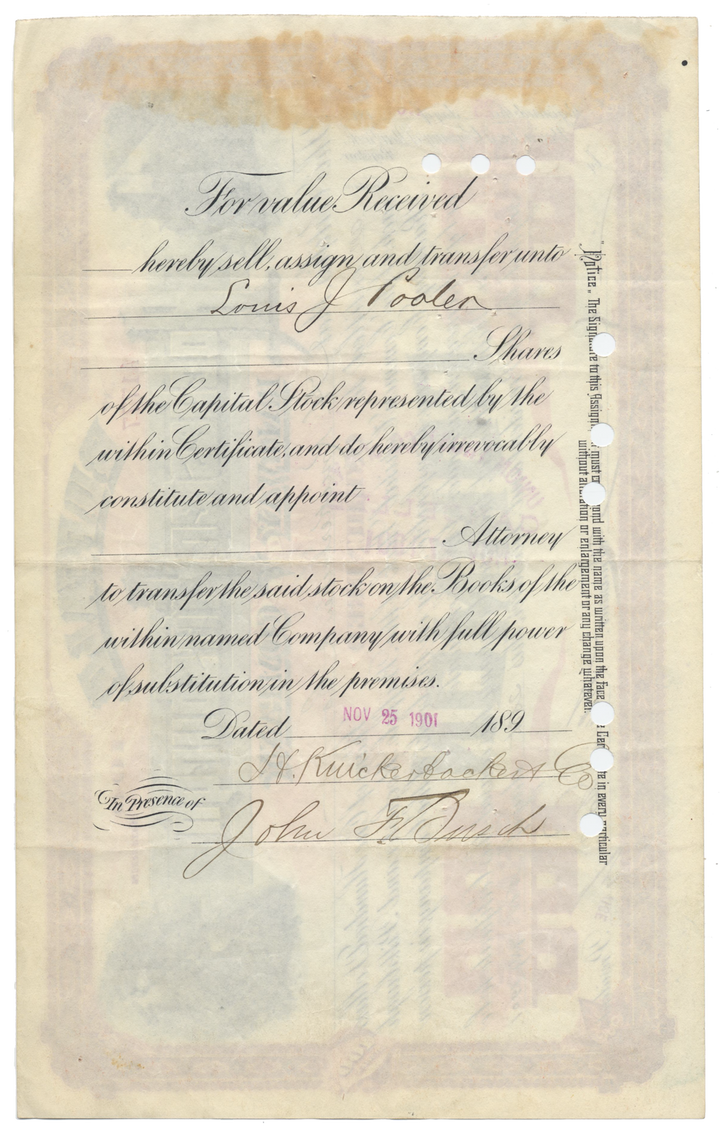 For value Received
hereby sell, assign and transfer unto
Louis J
Shares
of the Capital Stock represented by the
within Certificate, and do hereby irrevocably
constitute and appoint
Attorney
to transfer the said stock on the Books of the
within named Company with full power
of substitution in the premises.
Dated NOV 25 1901 189
J.H. Knickerbocker & Co
In Presence of
John F. Busch
Notice. The Signature to this Assign must and with the name as written upon the face in every particular
without or enlargement or any change whatever.